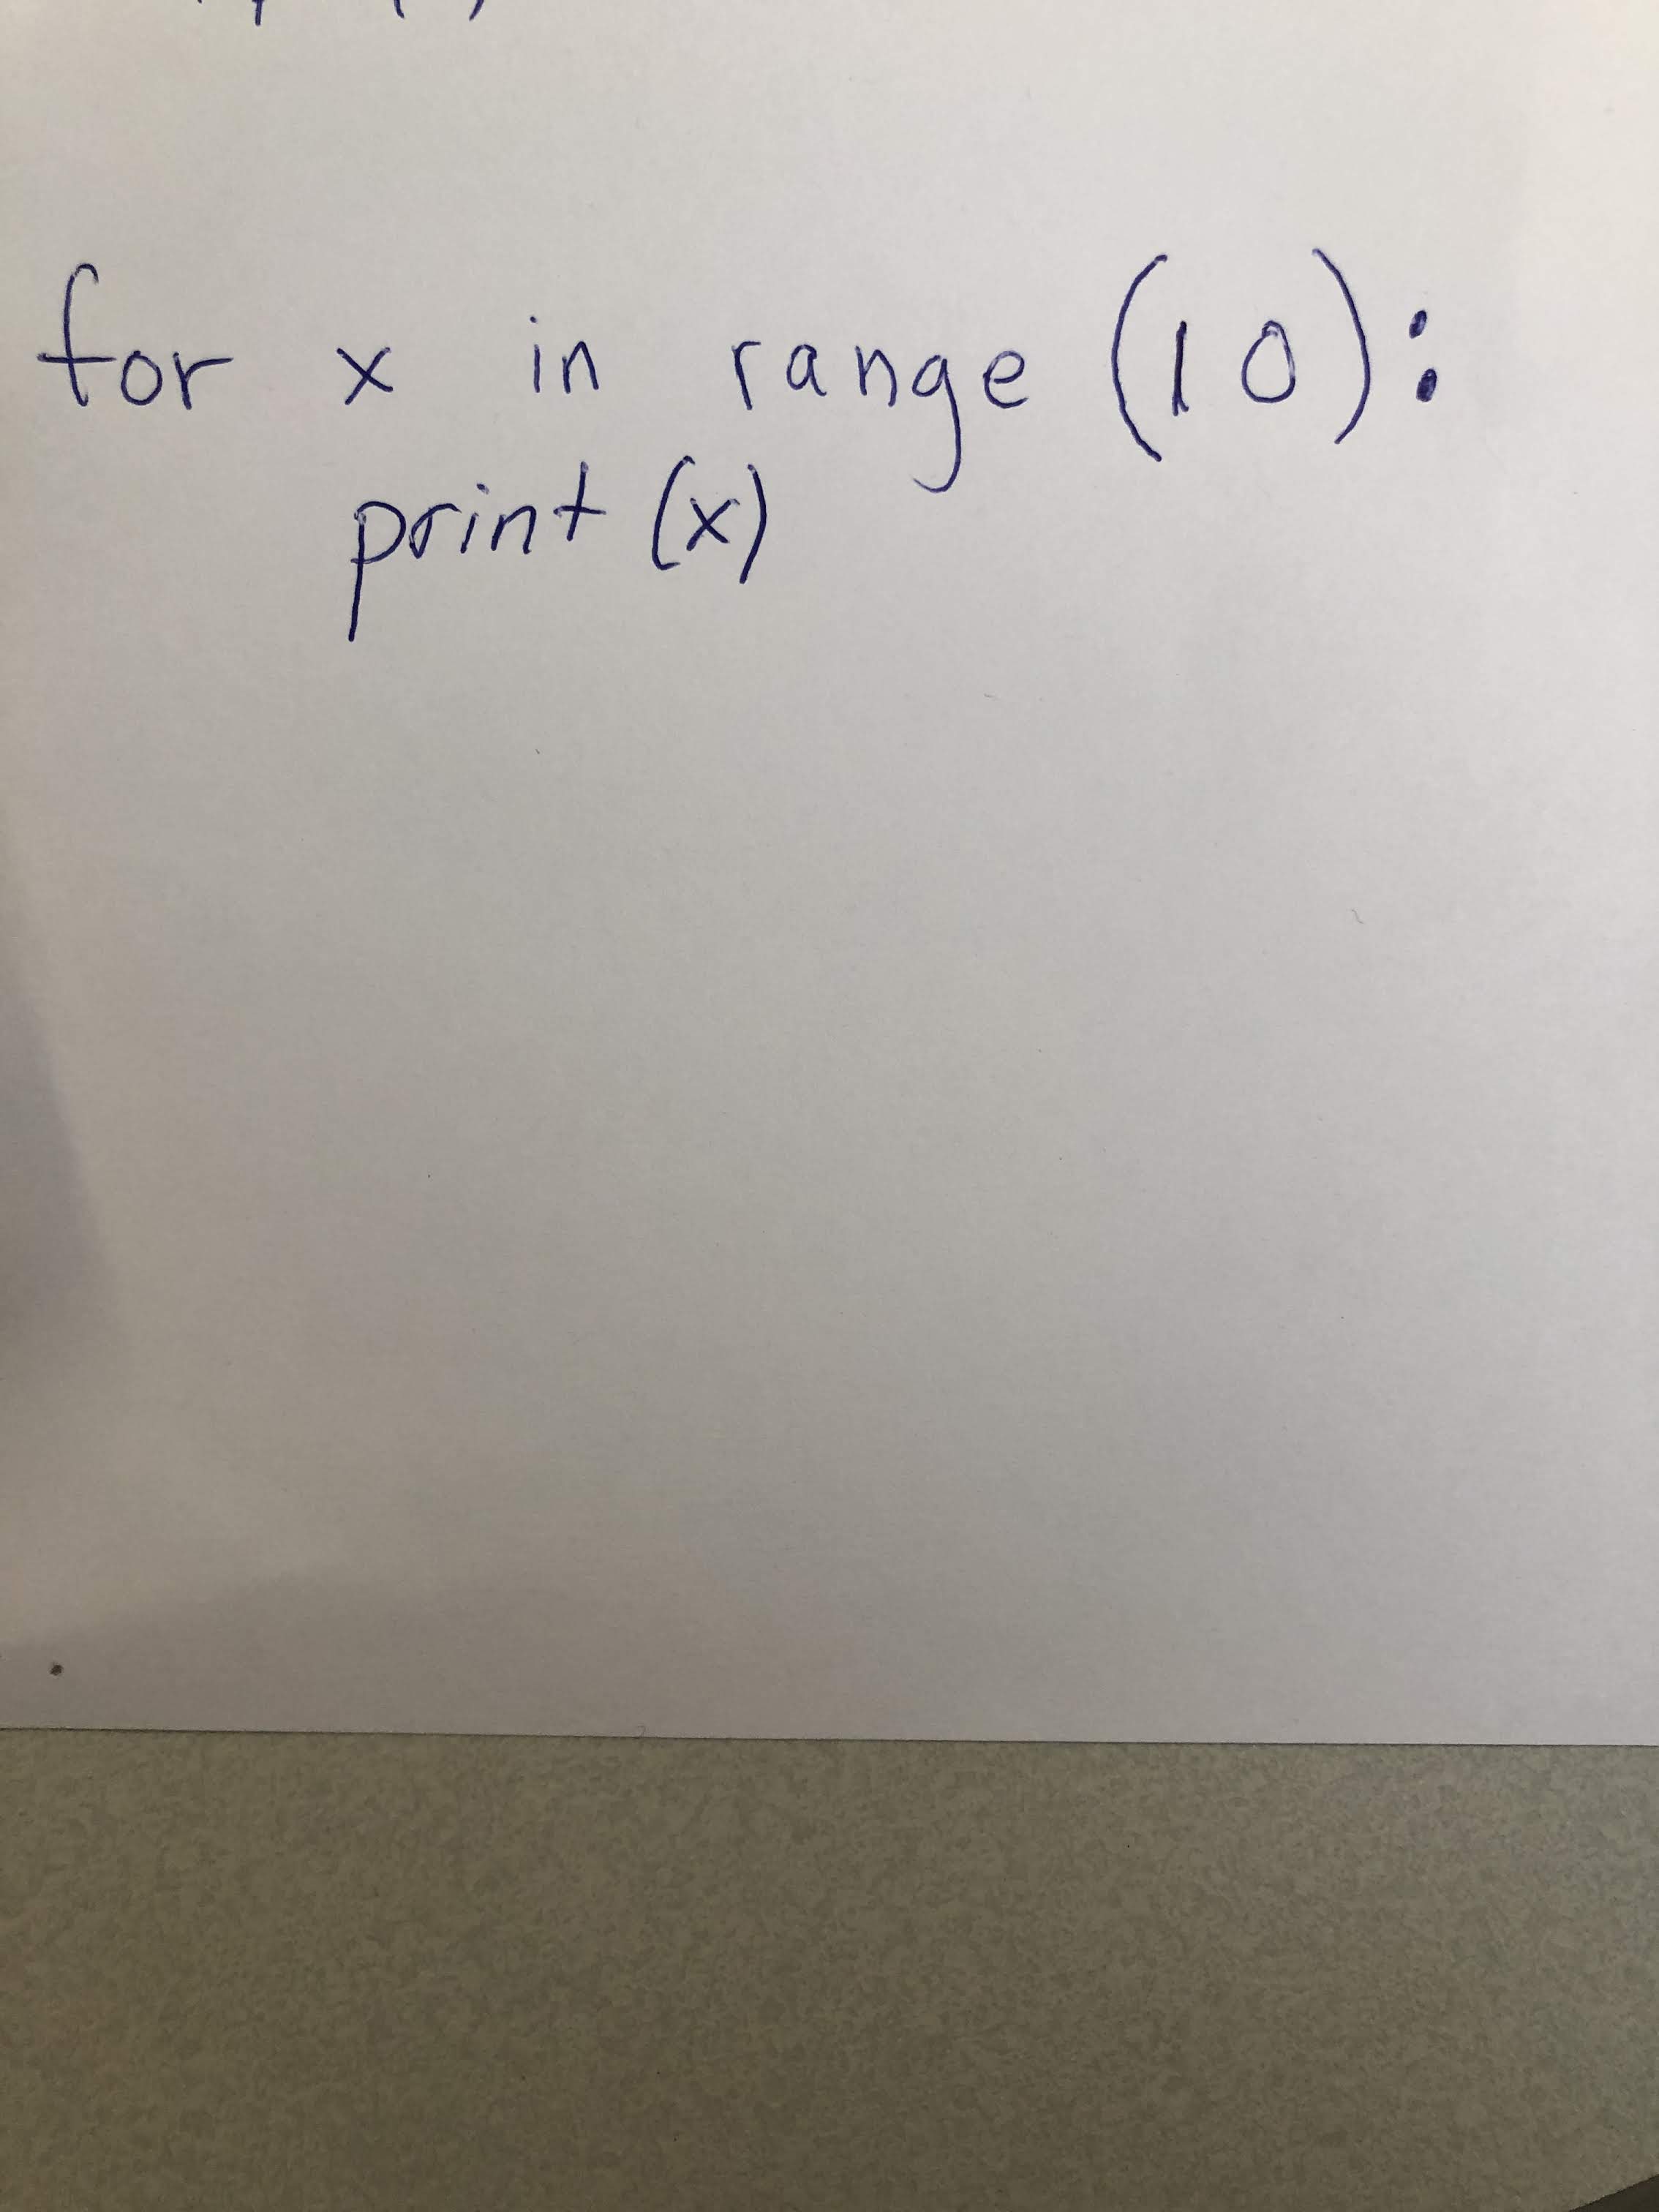 for x in range (10):
print (x)